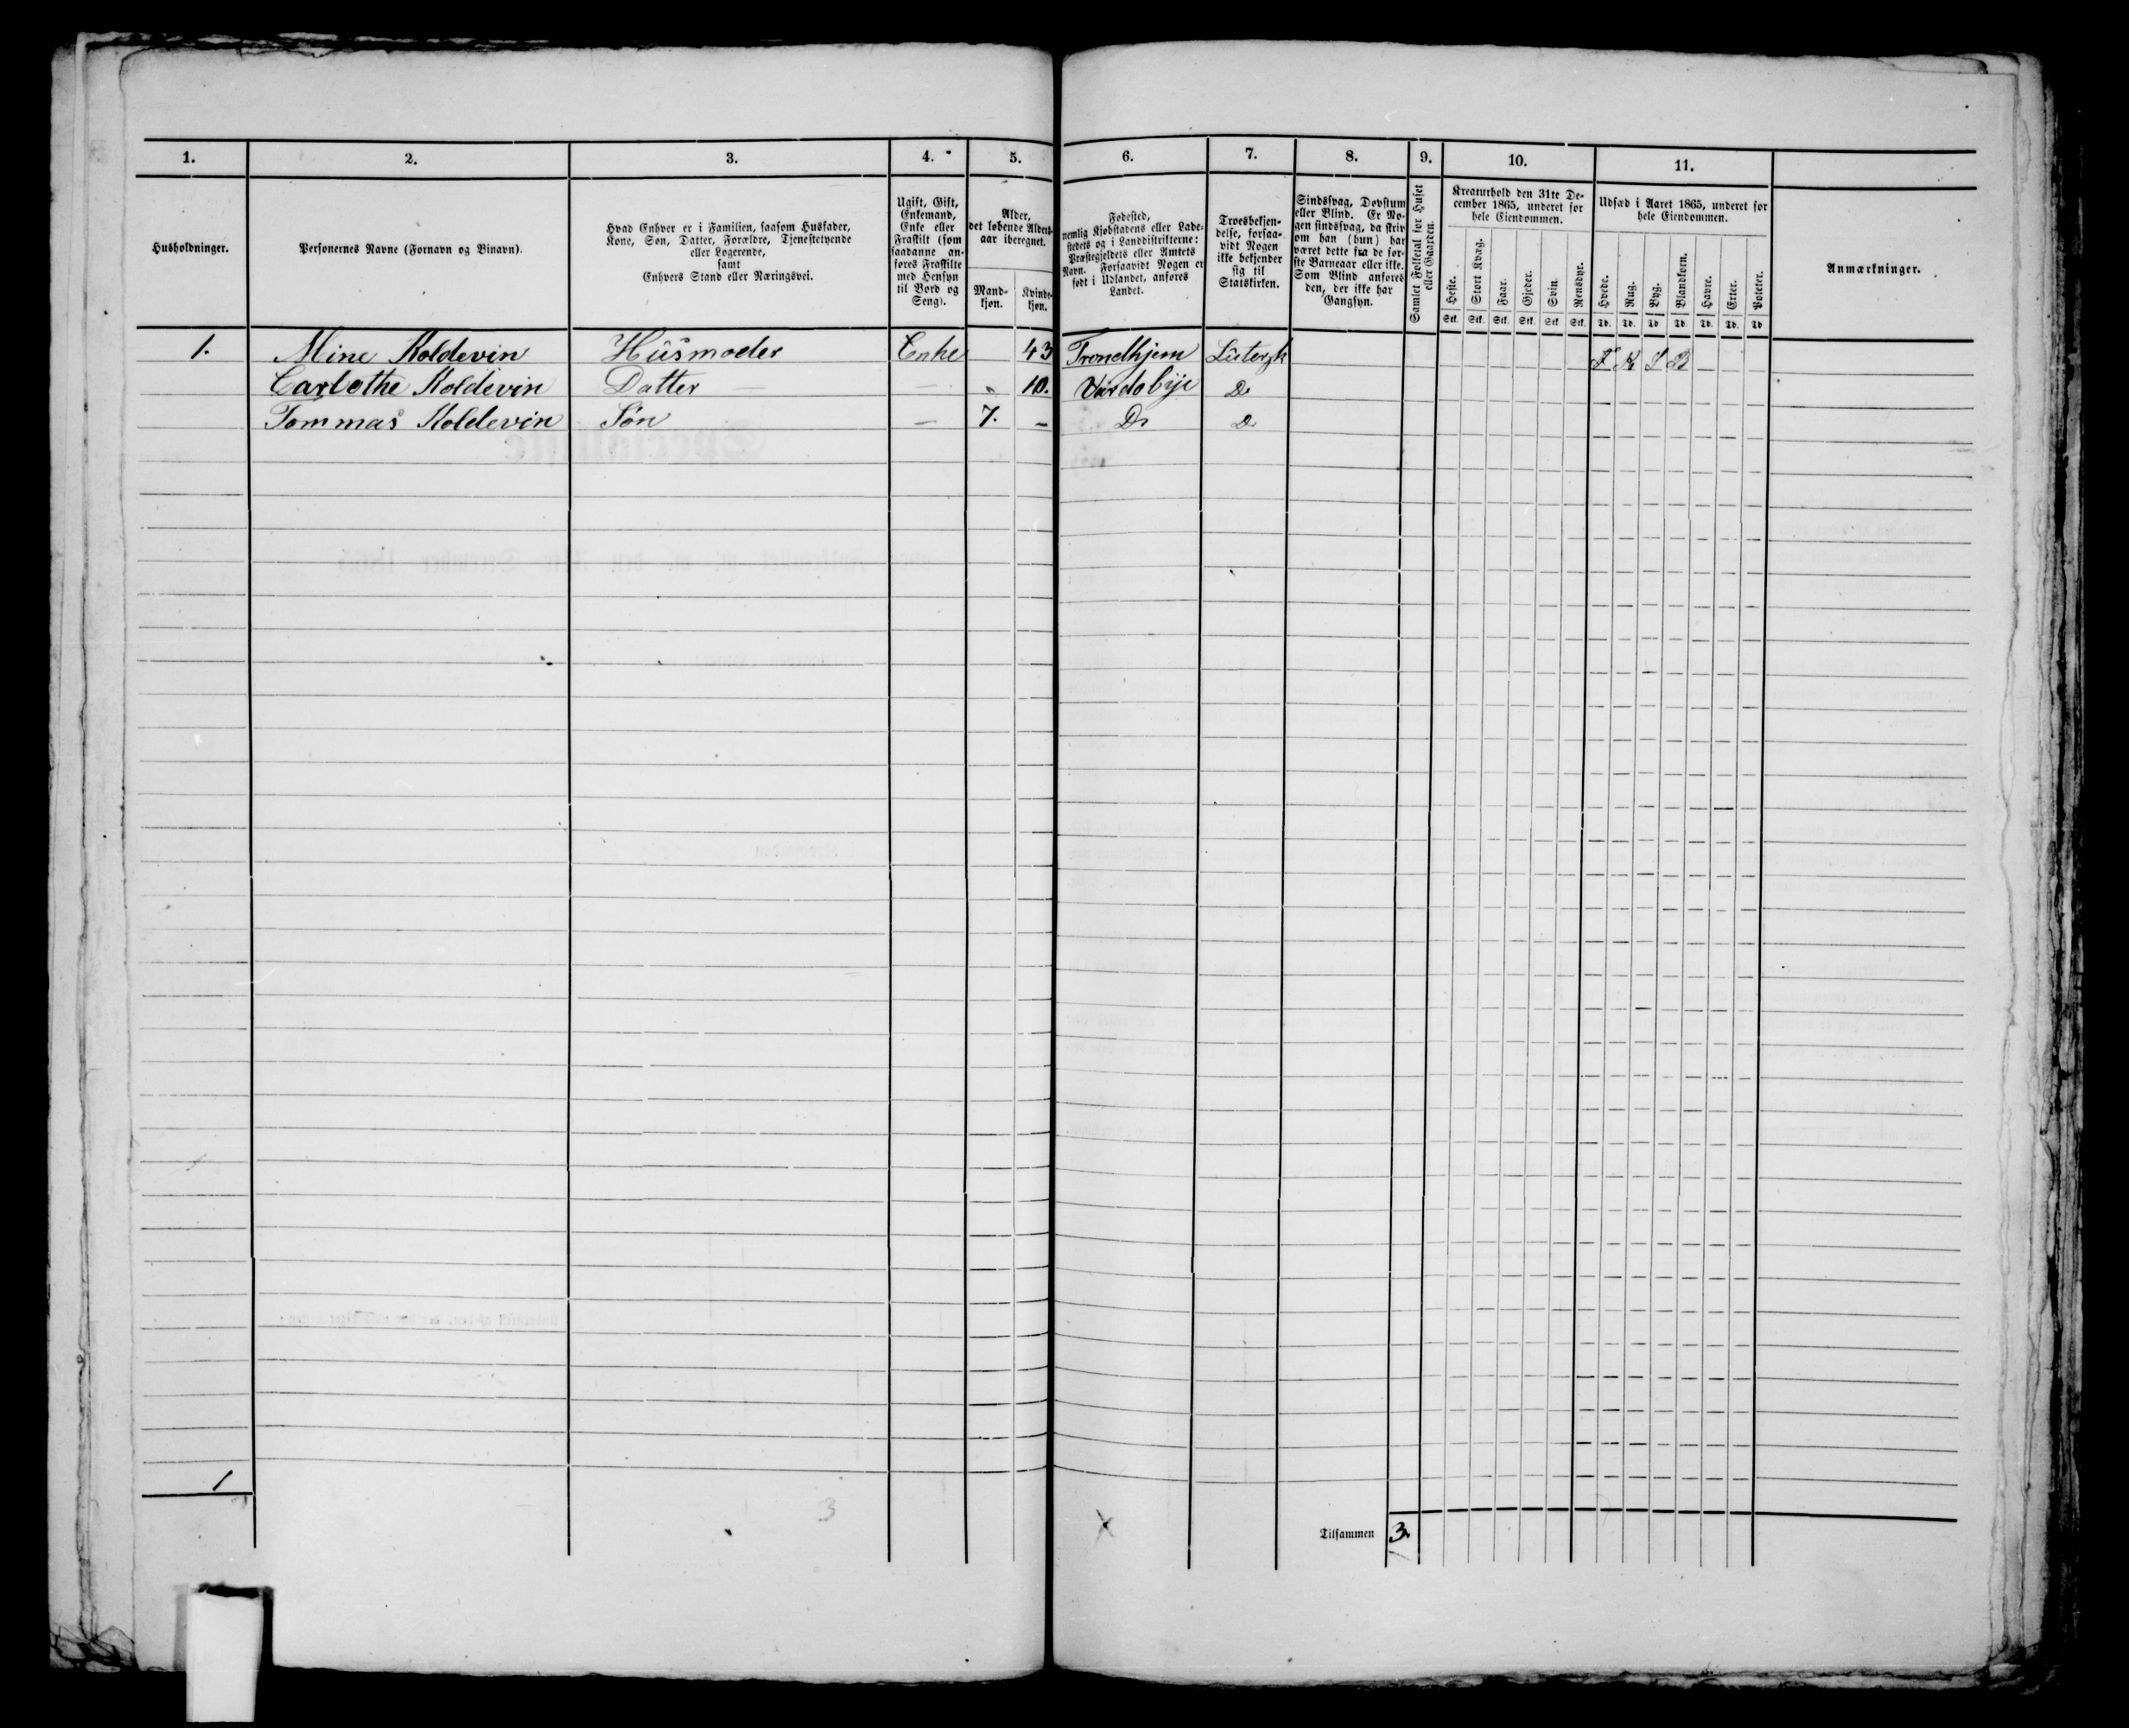 1. 2. 3. 4. 5. 6. 7. 8. 9. 10. 11.
Husholdninger.
Personernes Navne (Fornavn og Binavn).
Hvad Enhver er i Familien, saasom Husfader,
Kone, Søn, Datter, Forældre, Tjenestetyende
eller Logerende,
samt
Enhvers Stand eller Næringsvei.
Ugift, Gift,
Enkemand,
Enke eller
Fraskilt (som
saadanne an-
føres Fraskilte
med Hensyn
til Bord og
Seng).
Alder,
det løbende Alders-
aar iberegnet.
Mand-
kjøn.
Kvinde-
kjøn.
Fødested,
nemlig Kjøbstadens eller Lade-
stedets og i Landdistrikterne:
Præstegjeldets eller Amtets
Navn. Forsaavidt Nogen er
født i Udlandet, anføres
Landet.
Troesbekjen-
delse, forsaa-
vidt Nogen
ikke bekjender
sig til
Statskirken.
Sindssvag, Døvstum
eller Blind. Er No-
gen sindssvag, da skriv
om han (hun) har
været dette fra de før-
ste Barneaar eller ikke.
Som Blind anføres
den, der ikke har
Gangsyn.
Samlet Folketal for Huset
eller Gaarden.
Kreaturhold den 31te De-
cember 1865, underet for
hele Eiendommen.
Heste. Stort Kvæg. Faar. Gjeder. Svin. Rensdyr.
Stk. Stk. Stk. Stk. Stk. Stk.
Udsæd i Aaret 1865, underet for
hele Eiendommen.
Hvede. Rug. Byg. Blandkorn. Havre. Erter. Poteter.
Td. Td. Td Td. Td. Td. Td
Anmærkninger.
1. Mine Koldevin Husmoder Enke 43 Trondhjem
Carlothe Koldevin Datter — — „ 10. Vardo bye D
Tommas Koldevin Søn — 7. — Do D
1
3
Tilsammen 3.